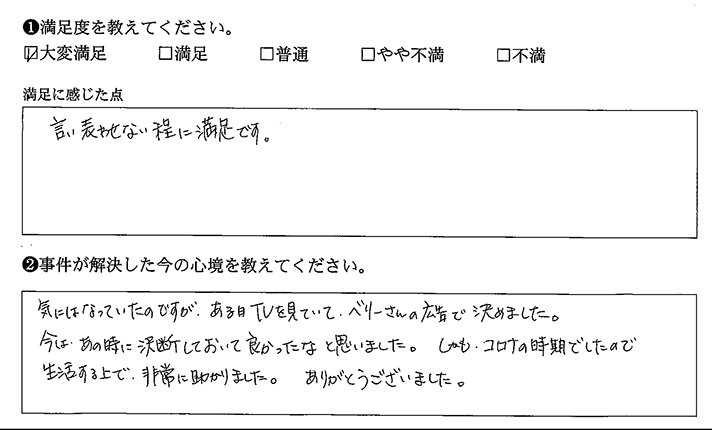 ❶満足度を教えてください。
☑大変満足 □満足 □普通 □やや不満 □不満
満足に感じた点
言い表わせない程に満足です。
❷事件が解決した今の心境を教えてください。
気にはなっていたのですが、ある日TVを見ていて、ベリーさんの広告で決めました。
今は、あの時に決断しておいて良かったなと思いました。 しかも、コロナの時期でしたので
生活する上で、非常に助かりました。 ありがとうございました。